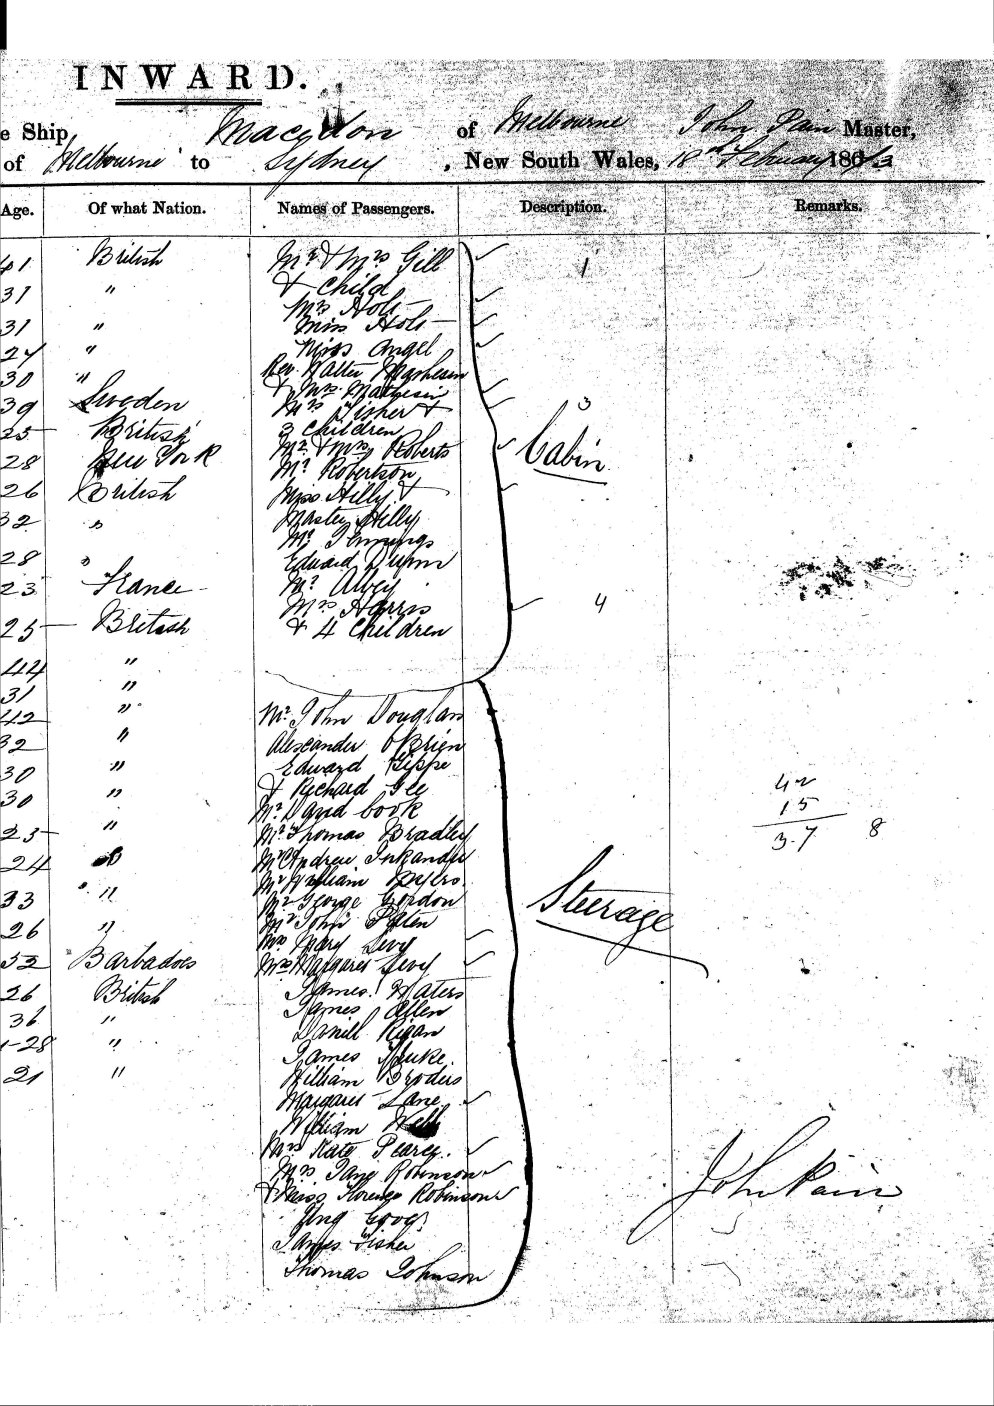 INWARD.
e Ship Macedon of Melbourne John Pain Master,
of Melbourne to Sydney, New South Wales, 18th February 1863
Age. Of what Nation. Names of Passengers. Description. Remarks.
41 British Mr & Mrs Gill 1
31 " & Child
Mrs Holt
31 " Miss Holt
24 " Miss Angel
30 " Rev. Walter
& Mrs Mathesin
39 Sweden Mrs Fisher & 3
25 British 3 Children
28 New York Mr & Mrs Roberts Cabin
Mr Robertson
26 British Miss Hilly &
32 " Master Hilly
Mr Jennings
28 " Edward Dunn
23 France Mr Alvey
Mrs Harris 4
25 British & 4 Children
44 "
31 "
42 " Mr John Douglas
32 " Alexander OBrien
30 " Edward Gippe
30 " & Richard Gee 42
Mr David Cook 15
23 " Mr Thomas Bradley 37 8
24 " Mr Andrew
Mr William Byers
33 " Mr George Gordon Steerage
26 " Mr John
Mrs Mary Levy
52 Barbadoes Mrs Margaret Levy
26 British James Waters
36 " James Allen
1-28 " Daniel Rigan
James
21 " William Broders
Margaret Lane
William Webb
Mrs Kate Pearcy
Mrs Jane Robinson John Pain
& Miss Florence Robinson
James Fisher
Thomas Johnson